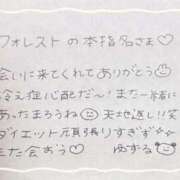 フォレストの本指名さま♡
会いに来てくれてありがとう
冷え症心配だ〜!また一緒に
あったまろうね 天士返し!!笑
ダイエット頑張りすぎず☆
また会おう♡ ゆずる